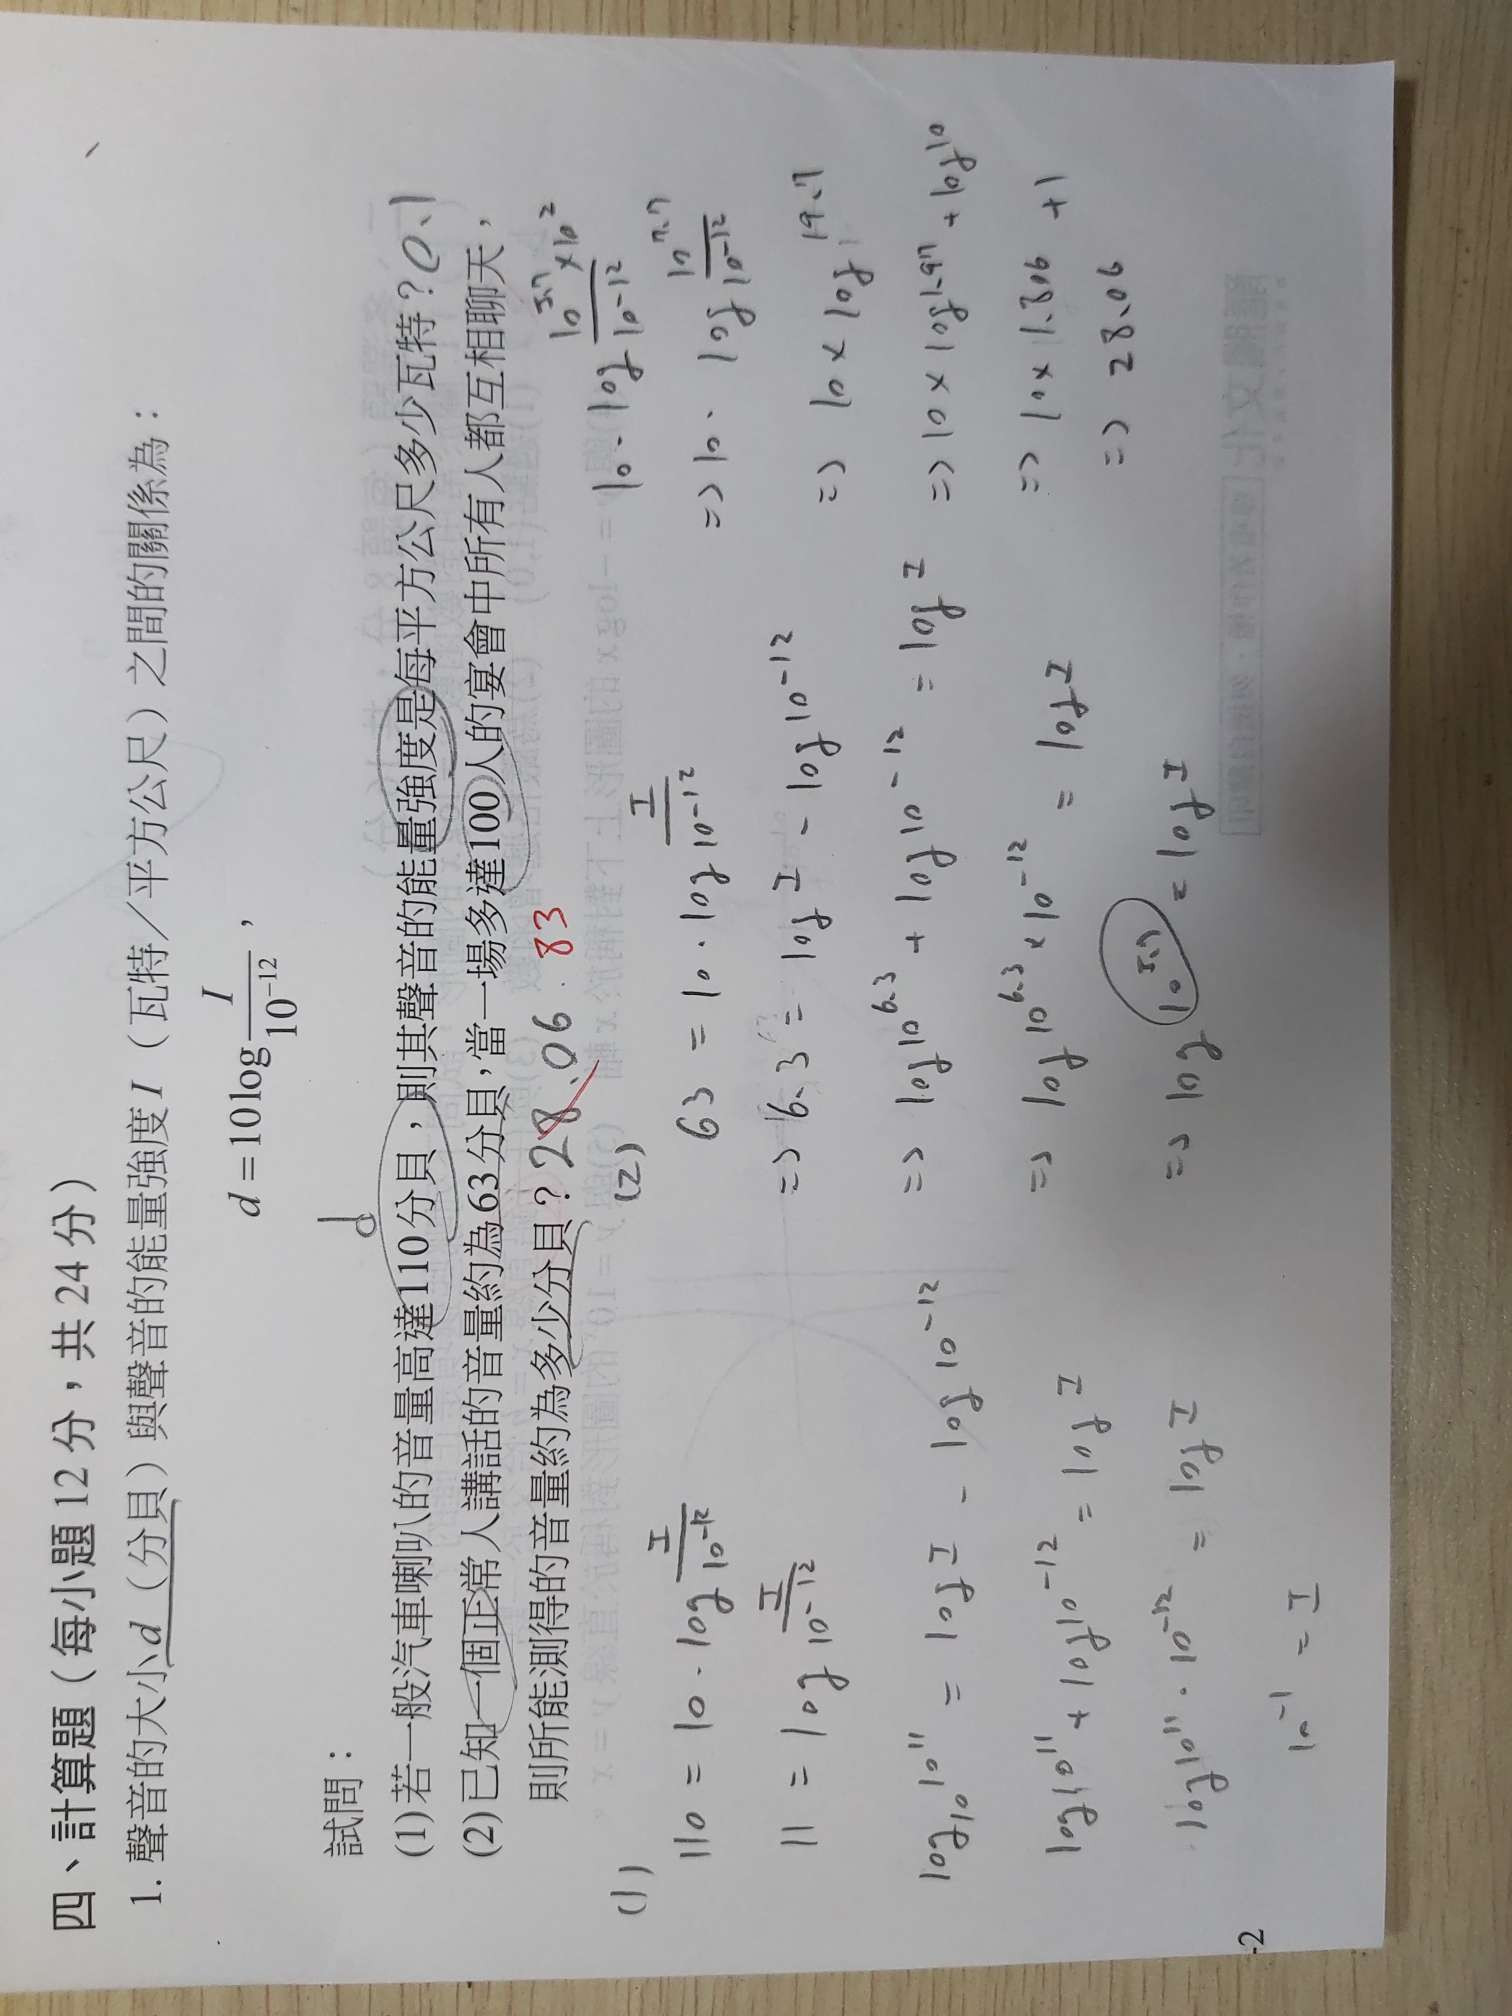 四、計算題（每小題 12 分，共 24 分）
1. 聲音的大小 d（分貝）與聲音的能量強度 I（瓦特／平方公尺）之間的關係為：
d = 10 log I/10⁻¹²，
試問：
d
(1) 若一般汽車喇叭的音量高達 110 分貝，則其聲音的能量強度是每平方公尺多少瓦特？0.1
(2) 已知一個正常人講話的音量約為 63 分貝，當一場多達 100 人的宴會中所有人都互相聊天，
則所能測得的音量約為多少分貝？28.06 83
(1)
110 = 10 · log I/10⁻¹²
11 = log I/10⁻¹²
log₁₀10¹¹ = log I - log 10⁻¹²
log10¹¹ + log10⁻¹² = log I
log10¹¹ · 10⁻¹² = log I
10⁻¹ = I
(2)
63 = 10 · log I/10⁻¹²
=> 6.3 = log I - log 10⁻¹²
=> log10^6.3 + log10⁻¹² = log I
=> log10^6.3 × 10⁻¹² = log I
=> log 10^5.7 = log I
10 · log 10^5.7 × 10²/10⁻¹²
=> 10 · log 10^7.7/10⁻¹²
=> 10 × log 19.7
=> 10 × log 1.97 + log 10
=> 10 × 1.806 + 1
=> 28.06
-2